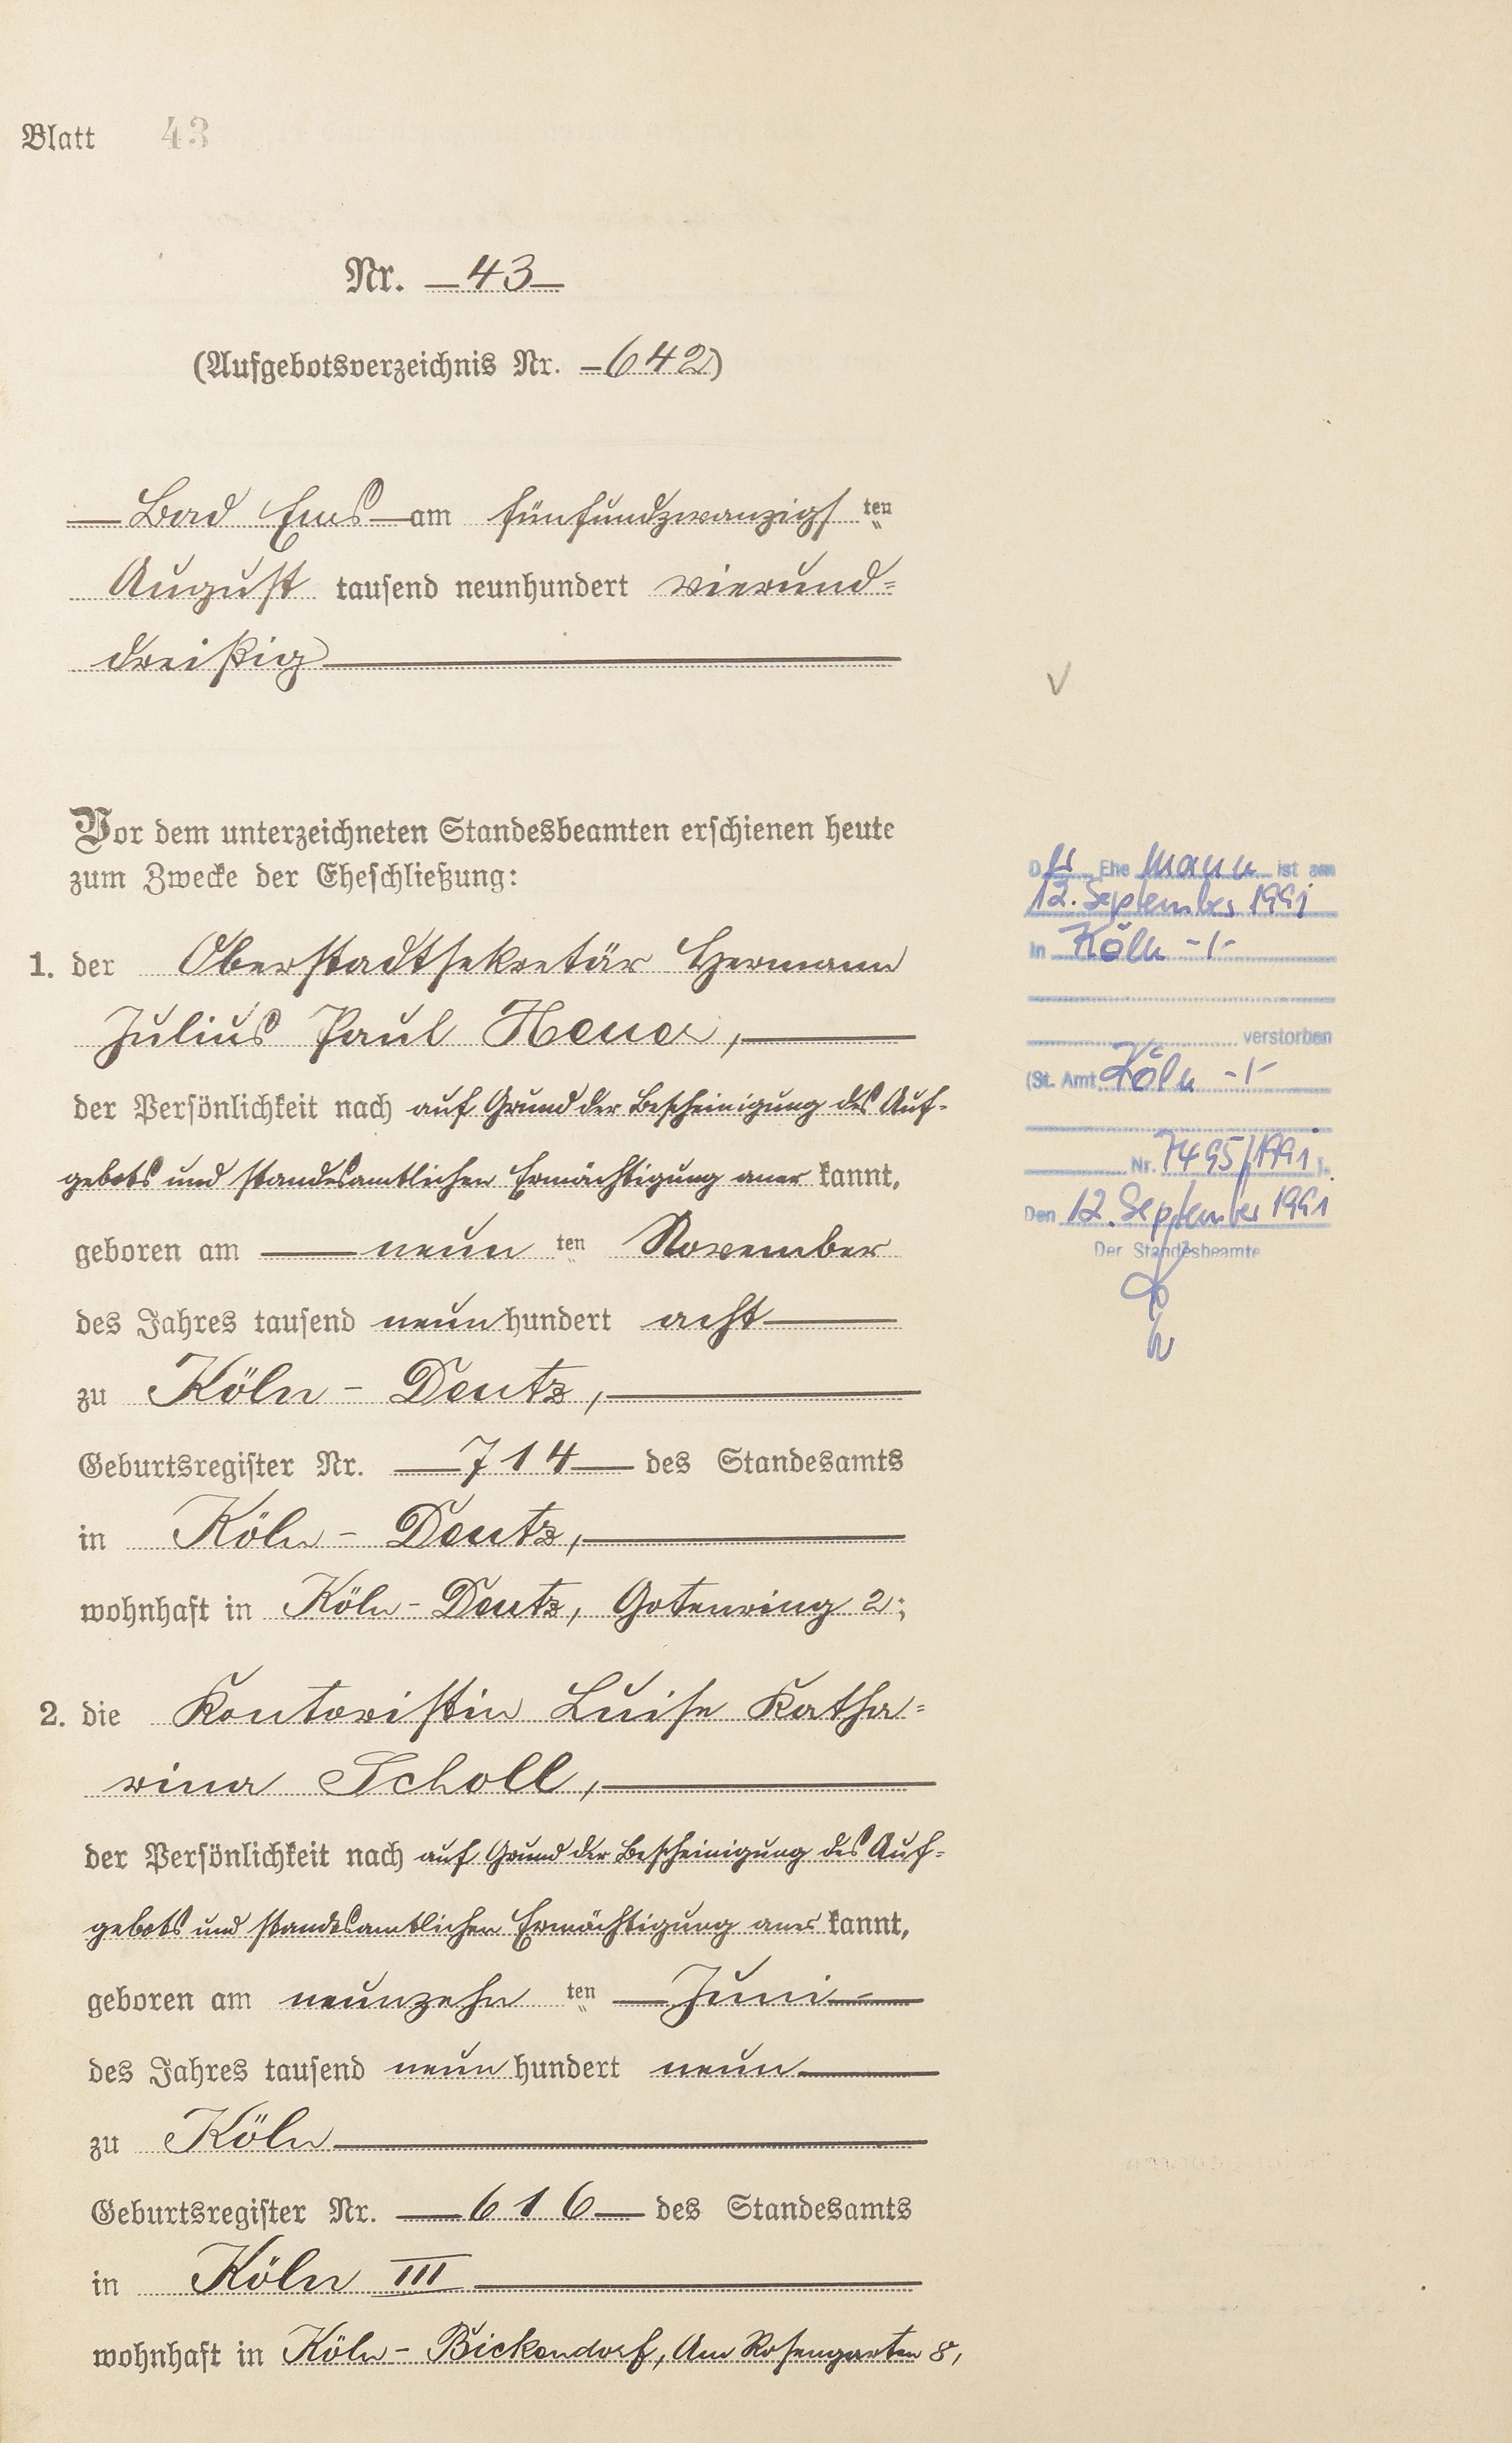 Blatt 43
Nr. 43
(Aufgebotsverzeichnis Nr. 642)
Bad Ems am fünfundzwanzigsten
August tausend neunhundert vierund=
dreißig
Vor dem unterzeichneten Standesbeamten erschienen heute
zum Zwecke der Eheschließung:
1. der Oberstadtsekretär Hermann
Julius Paul
der Persönlichkeit nach auf Grund der Bescheinigung des Auf-
gebots und standesamtlichen Ermächtigung aner kannt,
geboren am neun ten November
des Jahres tausend neun hundert acht
zu Köln - Deutz,
Geburtsregister Nr. 714 des Standesamts
in Köln - Deutz,
wohnhaft in Köln - Deutz, Gotenring 2;
2. die Kontoristin Luise Katha=
rina Scholl,
der Persönlichkeit nach auf Grund der Bescheinigung des Auf=
gebots und standesamtlichen Ermächtigung aner kannt,
geboren am neunzehn ten Juni
des Jahres tausend neun hundert neun
zu Köln
Geburtsregister Nr. 616 des Standesamts
in Köln III
wohnhaft in Köln - Bickendorf, Am Rosengarten 8,
Der Ehe mann ist am
12. September 1991
in Köln -/-
verstorben
(St. Amt Köln -/-
Nr. 7495/1991 ).
Den 12. September 1991
Der Standesbeamte